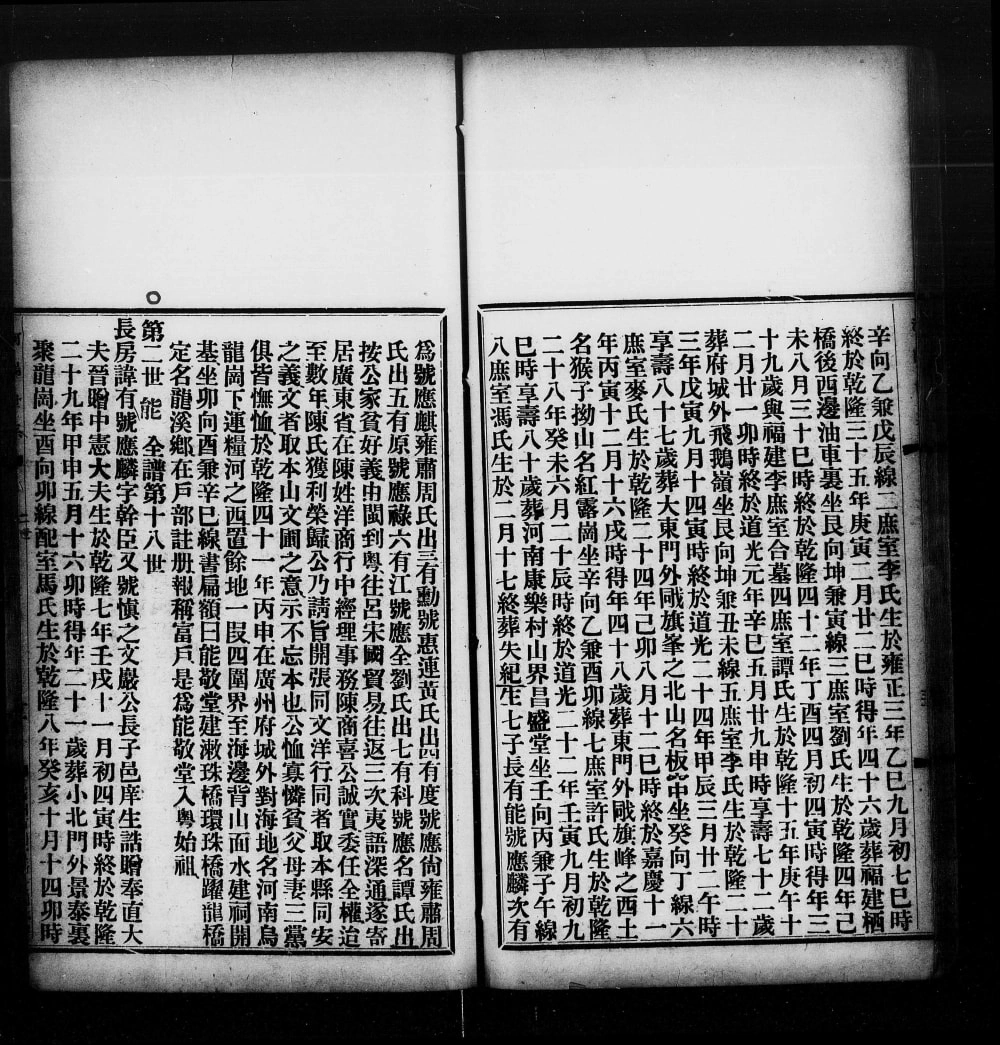 辛向乙兼戊辰線二庶室李氏生於雍正三年乙巳九月初七巳時
終於乾隆三十五年庚寅二月廿二巳時得年四十六歲葬福建栖
橋後西邊油車裏坐艮向坤兼寅線三庶室劉氏生於乾隆四年己
未八月三十巳時終於乾隆四十二年丁酉四月初四寅時得年三
十九歲與福建李庶室合墓四庶室譚氏生於乾隆十五年庚午十
二月廿一卯時終於道光元年辛巳五月廿九申時享壽七十二歲
葬府城外飛鵝嶺坐艮向坤兼丑未線五庶室李氏生於乾隆二十
三年戊寅九月十四寅時終於道光二十四年甲辰三月廿二午時
享壽八十七歲葬大東門外戙旗峯之北山名板中坐癸向丁線六
庶室麥氏生於乾隆二十四年己卯八月十二巳時終於嘉慶十一
年丙寅十二月十六戌時得年四十八歲葬東門外戙旗峰之西土
名猴子拗山名紅露崗坐辛向乙兼酉卯線七庶室許氏生於乾隆
二十八年癸未六月二十辰時終於道光二十二年壬寅九月初九
巳時享壽八十歲葬河南康樂村山界昌盛堂坐壬向丙兼子午線
八庶室馮氏生於二月十七終葬失紀生七子長有能號應麟次有
爲號應麒雍肅周氏出三有勳號惠連黃氏出四有度號應尙雍肅周
氏出五有原號應祿六有江號應全劉氏出七有科號應名譚氏出
按公家貧好義由閩到粵往呂宋國貿易往返三次夷語深通遂寄
居廣東省在陳姓洋商行中經理事務陳商喜公誠實委任全權迨
至數年陳氏獲利榮歸公乃請旨開張同文洋行同者取本縣同安
之義文者取本山文圃之意示不忘本也公恤寡憐貧父母妻三黨
俱皆撫恤於乾隆四十一年丙申在廣州府城外對海地名河南烏
龍崗下運糧河之西置餘地一段四圍界至海邊背山面水建祠開
基坐卯向酉兼辛巳線書扁額曰能敬堂建漱珠橋環珠橋躍龍橋
定名龍溪鄉在戶部註册報稱富戶是爲能敬堂入粵始祖
第二世 能 全譜第十八世
長房諱有號應麟字幹臣又號愼之文巖公長子邑庠生誥贈奉直大
夫晉贈中憲大夫生於乾隆七年壬戌十一月初四寅時終於乾隆
二十九年甲申五月十六卯時得年二十一歲葬小北門外景泰裏
聚龍崗坐酉向卯線配室馬氏生於乾隆八年癸亥十月十四卯時